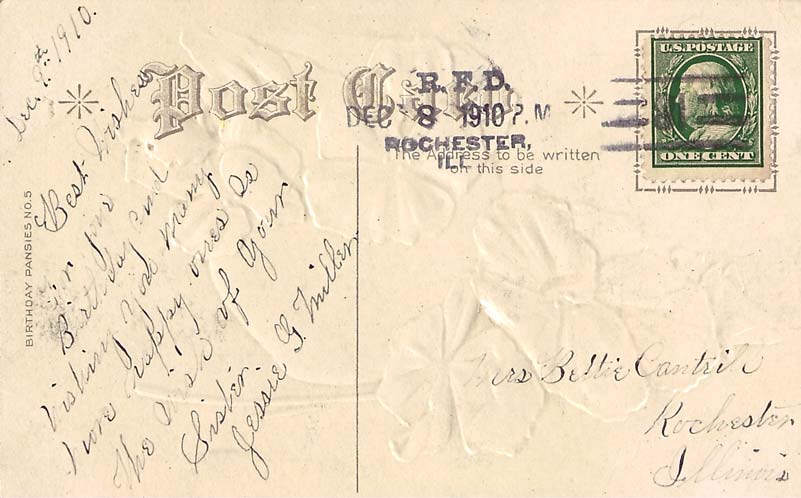 Dec. 9th 1910.
Best Wishes
for
Birthday and
wishing you many
more happy ones is
The Wish of your
Sister.
Jessie G. Miller
BIRTHDAY PANSIES NO.5
Post Card
R.F.D.
DEC 8 1910 P.M
ROCHESTER,
ILL
The Address to be written
on this side
U.S. POSTAGE
ONE CENT
Mrs Bettie Cantrill
Rochester
Illinois